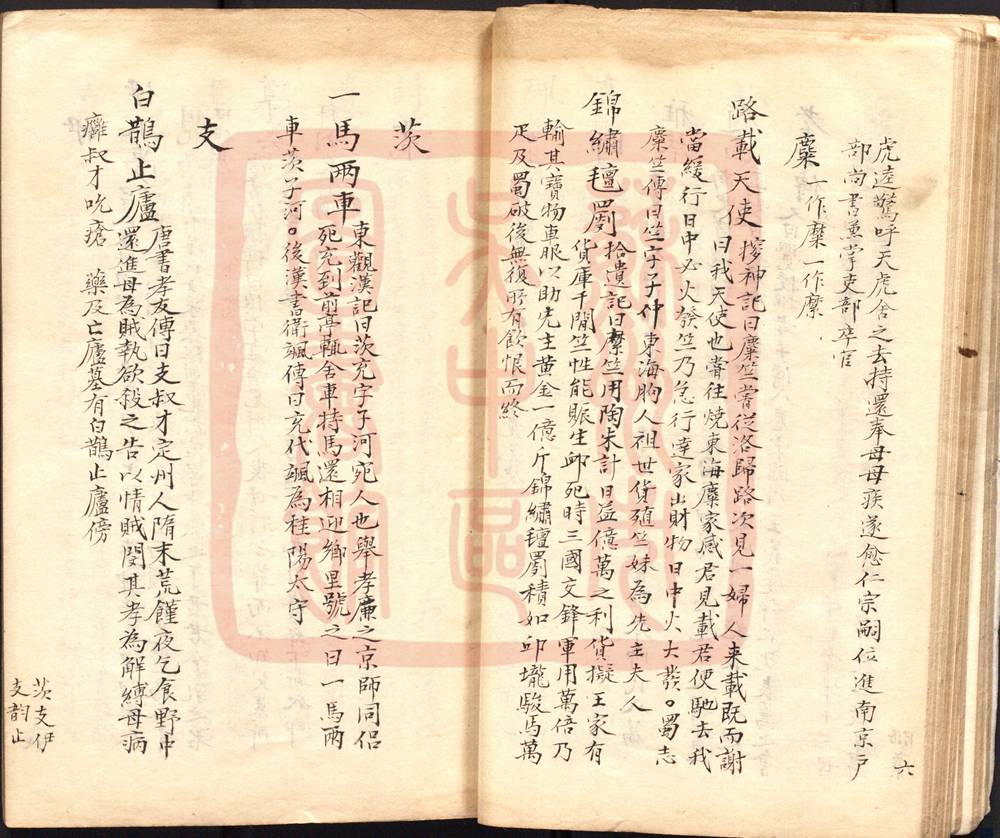 虎逵驚呼天虎舍之去持還奉母母疾遂愈仁宗嗣位進南京戶
部尚書兼掌吏部卒官
糜 一作縻一作𪎭
路載天使 搜神記曰糜竺嘗從洛歸路次見一婦人来載既而謝
曰我天使也當往燒東海糜家感君見載君便馳去我
當緩行日中必火發竺乃急行達家出財物日中火大發○蜀志
糜竺傳曰竺字子仲東海朐人祖世貨殖竺妹為先主夫人
錦繡氊罽 拾遺記曰糜竺用陶朱計日益億萬之利貨擬王家有
貨庫千間竺性能賑生卹死時三國交鋒軍用萬倍乃
輸其寶物車服以助先主黃金一億斤錦繡氊罽積如邱壠駿馬萬
疋及蜀破後無復所有飲恨而終
六
茨
一馬兩車 東觀漢記曰茨充字子河宛人也舉孝廉之京師同侶
死充到前亭輒舍車持馬還相迎鄉里號之曰一馬兩
車茨子河○後漢書衛颯傳曰充代颯為桂陽太守
支
白鵲止廬 唐書孝友傳曰支叔才定州人隋末荒饉夜乞食野中
還進母為賊執欲殺之告以情賊閔其孝為解縛母病
癰叔才吮瘡 藥及亡廬墓有白鵲止廬傍
茨支伊
支韵止